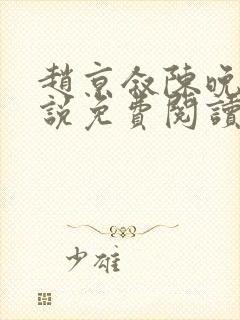 趙京敘陳晚
說免費閱讀
少雄